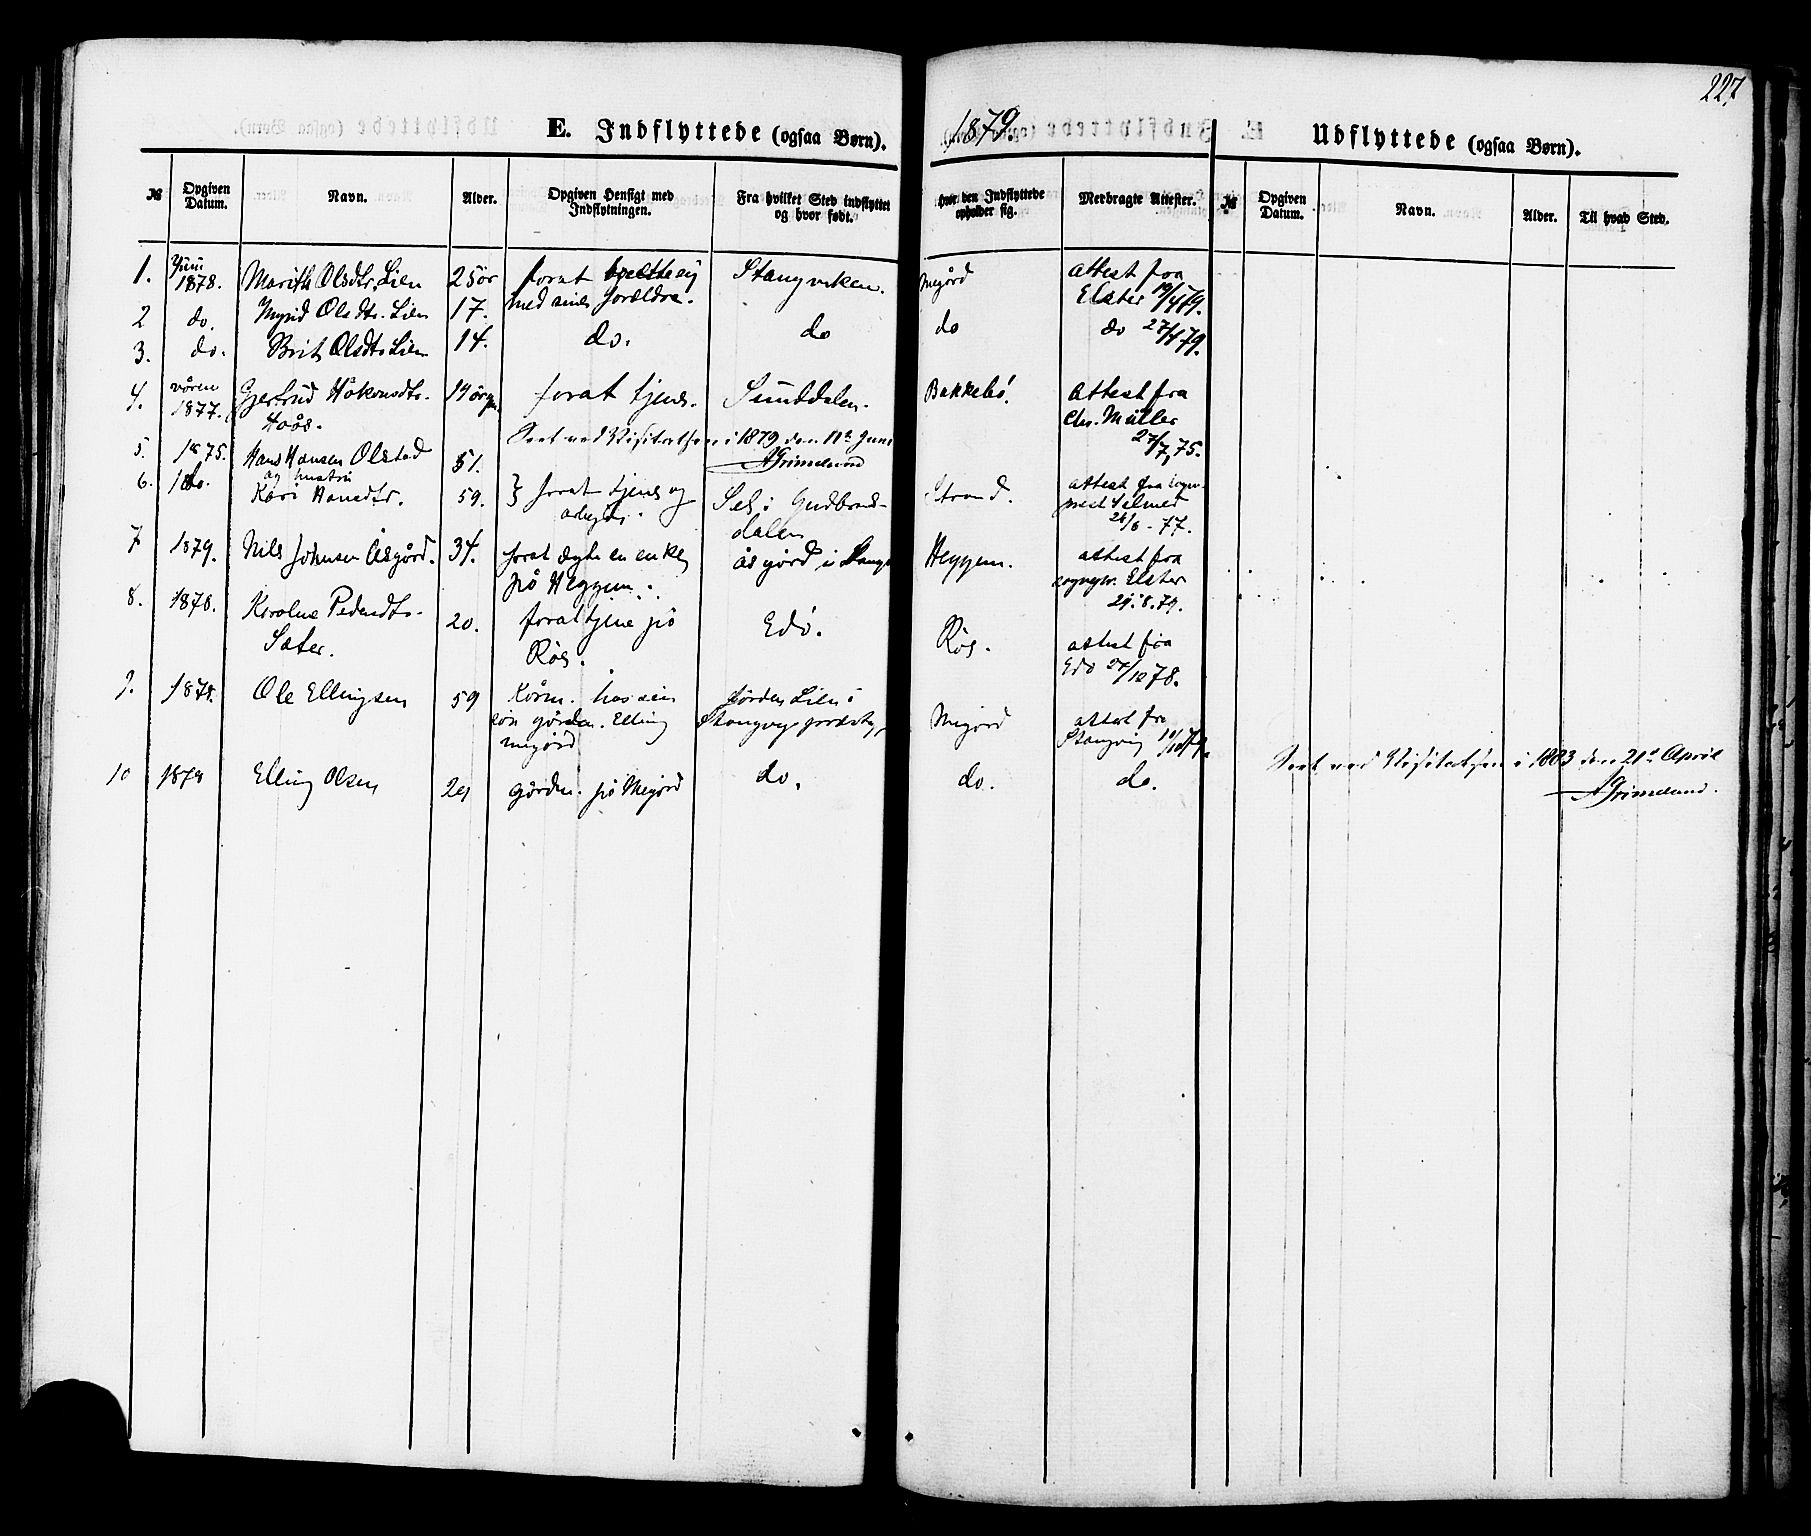 227
1879.
E. Indflyttede (ogsaa Børn).
Udflyttede (ogsaa Børn).
№ Opgiven Datum. Navn. Alder. Opgiven Hensigt med Indflytningen. Fra hvilket Sted indflyttet og hvor født. Hvor den Indflyttede opholder sig. Medbragte Attester.
№ Opgiven Datum. Navn. Alder. Til hvad Sted.
1. Juni 1878. Marith Olsdtr. Lien 25 år forat Stangviken. Megård attest fra Elster 19/4 79.
med sine forældre.
2 do. Olsdtr. Lien 17.
3. do. Brit Olsdtr Lien 14. do. do do do 27/4 79.
4. våren 1877. Gjertrud Håkonsdtr. Hoås. 14 år forat tjene. Sunddalen. Bakkebø. attest fra Chr. Müller 27/7, 75.
Seet ved Visitatsen i 1879 den 11te Juni
AGrimelund
5. 1875. Hans Hansen Olstad 51.
6. do. og hustru Kari Hansdtr. 59. forat tjene og arbejde. Sel i Gudbrandsdalen Strand. attest fra 26/6 - 77.
7 1879. Nils Johnsen Åsgård. 34. forat ægte en enke på Heggem. åsgård i Stangv Heggem. attest fra sognepr. Elster 29.8.79.
8. 1878. Karoline Pedersdtr. Sæter. 20. forat tjene på Røs. Edø. Røs. attest fra Edø 27/12 78.
9. 1878. Ole Ellingsen 59 hos sin søn gården. Elling megård gården Lien i Stangvig præstg. Megård attest fra Stangvig
10 1878 Elling Olsen 29 gården. på Megård do. do. do.
Seet ved Visitatsen i 1883 den 21de April
AGrimelund.